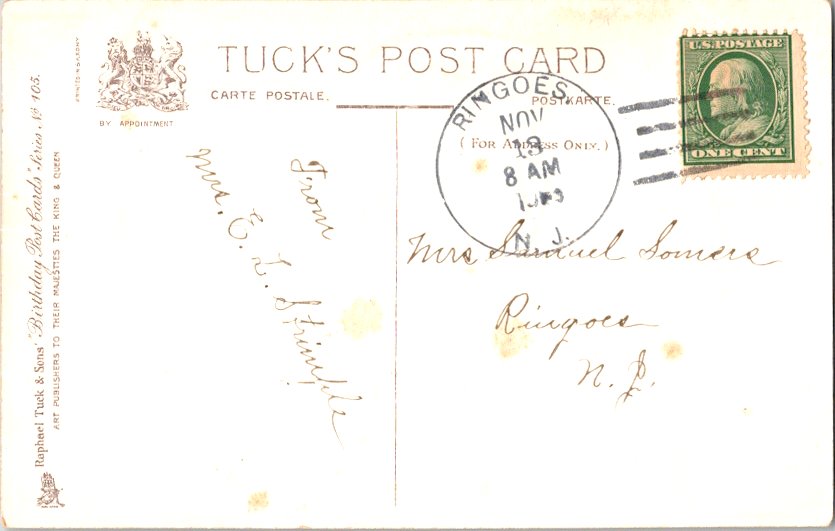 TUCK'S POST CARD
CARTE POSTALE.
POSTKARTE.
BY APPOINTMENT
(FOR ADDRESS ONLY.)
PRINTED IN SAXONY
Raphael Tuck & Sons' "Birthday Post Cards" Series No 105.
ART PUBLISHERS TO THEIR MAJESTIES THE KING & QUEEN
U.S. POSTAGE
ONE CENT
RINGOES
NOV
13
8 AM
N. J.
From
Mrs. E. L. Strimple
Mrs Samuel Somers
Ringoes
N. J.